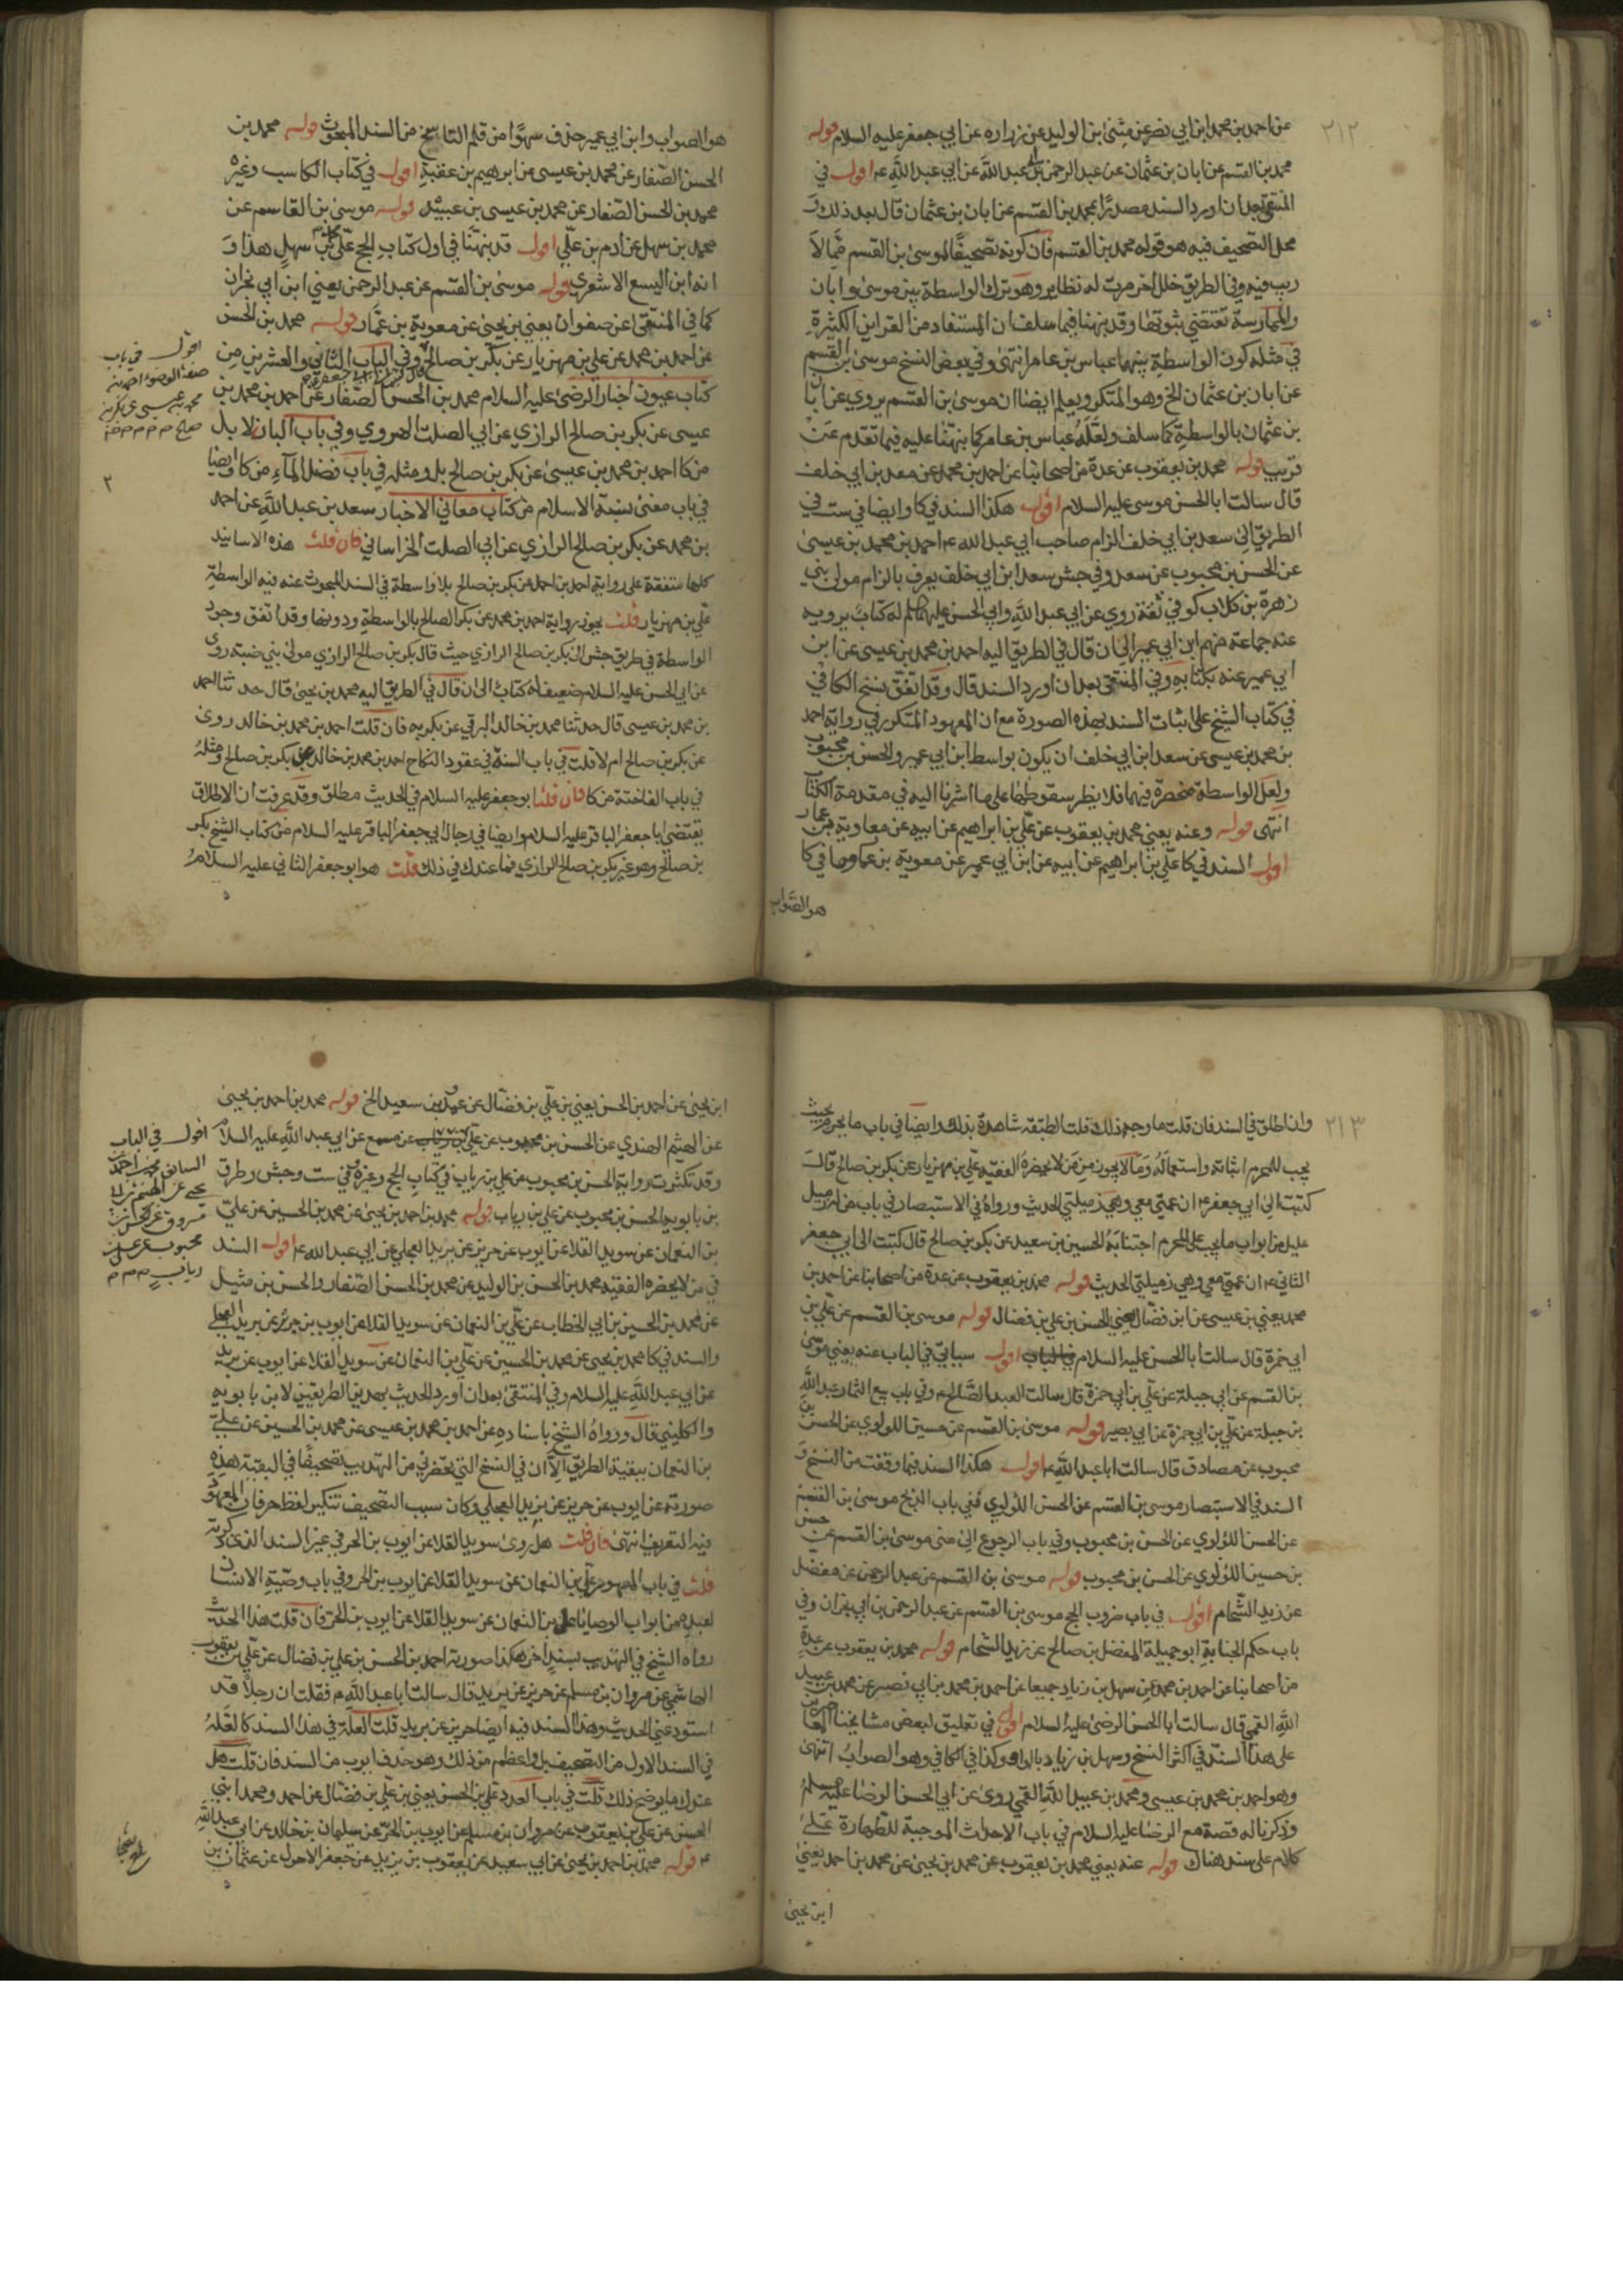 ٢١٢
عن احمد بن محمد ابن ابي نصر عن مثنى بن الوليد عن زراره عن ابي جعفر عليه السلام قوله
محمد بن القسم عن ابان بن عثمان عن عبد الرحمن بن عبد الله عن ابي عبد الله ع اقول في
المنتقى بعد ان اورد السند مصدرا بمحمد بن القسم عن ابان بن عثمان قال بعد ذلك و
محل التصحيف فيه هو قوله محمد بن القسم فان كونه تصحيفا لموسى بن القسم مما لا
ريب فيه وفي الطريق خلل اخر مرت له نظاير وهو ترك الواسطة بين موسى وابان
والممارسة تقتضي بثبوتها وقد نبهنا فيما سلف ان المستفاد من القراين الكثيرة
في مثله كون الواسطة بينهما عباس بن عامر انتهى وفي بعض النسخ موسى بن القسم
عن ابان بن عثمان الخ وهو المتكرر ويعلم ايضا ان موسى بن القسم يروي عن ابان
بن عثمان بالواسطة كما سلف ولعله عباس بن عامر كما نبهنا عليه فيما تقدم عن
قريب قوله محمد بن يعقوب عن عدة من اصحابنا عن احمد بن محمد عن سعد بن ابي خلف
قال سالت ابا الحسن موسى عليه السلام اقول هكذا السند في كا وايضا في ست في
الطريق الى سعد بن ابي خلف الزام صاحب ابي عبد الله ع احمد بن محمد بن عيسى
عن الحسن بن محبوب عن سعد وفي جش سعد ابن ابي خلف يعرف بالزام مولى بني
زهرة بن كلاب كوفي ثقة روي عن ابي عبد الله وابي الحسن عليهما السلم له كتاب يرويه
عنه جماعة منهم ابن ابي عمير الى ان قال في الطريق اليه احمد بن محمد بن عيسى عن ابن
ابي عمير عنه بكتابه وفي المنتقى بعد ان اورد السند قال وقد اتفق نسخ الكافي
في كتاب الشيخ على اثبات السند بهذه الصورة مع ان المعهود المتكرر في رواية احمد
بن محمد بن عيسى عن سعد ابن ابي خلف ان يكون بواسطة ابن ابي عمير والحسن بن محبوب
ولعل الواسطة منحصرة فيهما فلا يظر سقوطها على ما اشرنا اليه في مقدمة الكتاب
انتهى قوله وعنه يعني محمد بن يعقوب عن علي بن ابراهيم عن ابيه عن معاوية بن عمار
اقول السند في كا علي بن ابراهيم عن ابيه عن ابن ابي عمير عن معوية بن عمار وما في كا
هو الصواب
هو الصواب وابن ابي عمير حذف سهوا من قلم الناسخ من السند المبحوث قوله محمد بن
الحسن الصفار عن محمد بن عيسى عن ابرهيم بن عقبة اقول في كتاب المكاسب وغيره
محمد بن الحسن الصفار عن محمد بن عيسى بن عبيد قوله موسى بن القاسم عن
محمد بن سهل عن ادم بن علي اقول قد نبهنا في اول كتاب الحج على محمد بن سهل هذا و
انه ابن اليسع الاشعري قوله موسى بن القسم عن عبد الرحمن يعني ابن ابي نجران
كما في المنتقى عن صفوان يعني بن يحيى عن معوية بن عمار قوله محمد بن الحسن
عن احمد بن محمد عن علي بن مهزيار عن بكر بن صالح وفي الباب الثاني والعشرين من
كتاب عيون اخبار الرضى عليه السلام محمد بن الحسن الصفار عن احمد بن محمد بن
عيسى عن بكر بن صالح الرازي عن ابي الصلت الهروي وفي باب البان لا بل
من كا احمد بن محمد بن عيسى عن بكر بن صالح بل ومثله في باب فضل الماء من كا وايضا
في باب معنى نسبة الاسلام من كتاب معاني الاخبار سعد بن عبد الله عن احمد
بن محمد عن بكر بن صالح الرازي عن ابي الصلت الخراساني فان قلت هذه الاسانيد
كلها متفقة على رواية احمد بن محمد عن بكر بن صالح بلا واسطة في السند المبحوث عنه فيه الواسطة
علي بن مهزيار قلت يجوز رواية احمد بن محمد عن بكر الصالح بالواسطة ودونها وقد اتفق وجود
الواسطة في طريق جش الى بكر بن صالح الرازي حيث قال بكر بن صالح الرازي مولى بني ضبة روى
عن ابي الحسن عليه السلام ضعيف له كتاب الى ان قال في الطريق اليه محمد بن يحيى قال حدثنا احمد
بن محمد بن عيسى قال حدثنا محمد بن خالد البرقي عن بكر به فان قلت احمد بن محمد بن خالد روى
عن بكر بن صالح ام لا قلت في باب السنة في عقود النكاح احمد بن محمد بن خالد عن بكر بن صالح ومثله
في باب الفاختة من كا فان قلنا ابو جعفر عليه السلام في الحديث مطلق وقد عرفت ان الاطلاق
يقتضي ابا جعفر الباقر عليه السلام وايضا في رجال ابي جعفر الباقر عليه السلام من كتاب الشيخ بكر
بن صالح وهو غير بكر بن صالح الرازي فما عندك في ذلك قلت هو ابو جعفر الثاني عليه السلام
اقول في باب
صفة الوضوء احمد بن
محمد بن عيسى عن بكر بن
صالح
٢
٢١٣
وان اطلق في السند فان قلت ما وجه ذلك قلت الطبقة شاهدة بذلك وايضا في باب ما يجوز بحيث
يجب للمحرم اتيانه واستعماله وما لا يجوز من من لا يحضره الفقيه علي بن مهزيار عن بكر بن صالح قال
كتبت الى ابي جعفر ع ان عمتي معي وهي زميلتي الحديث ورواه في الاستبصار في باب من له زميل
عليل من ابواب ما يجب على المحرم اجتنابه الحسين بن سعيد عن بكر بن صالح قال كتبت الى ابي جعفر
الثاني ع ان عمتي معي وهي زميلتي الحديث قوله محمد بن يعقوب عن عدة من اصحابنا عن احمد بن
محمد يعني بن عيسى عن ابن فضال يعني الحسن بن علي بن فضال قوله موسى بن القسم عن علي بن
ابي حمزة قال سالت ابا الحسن عليه السلام اقول سياتي في الباب عنه يعني موسى
بن القسم عن ابي جبلة عن علي بن ابي حمزة قال سالت العبد الصالح ع وفي باب بيع الثمار عبد الله
بن جبلة عن علي بن ابي حمزة عن ابي بصير قوله موسى بن القسم عن حسين اللولوي عن الحسن بن
محبوب عن مصادق قال سالت ابا عبد الله ع اقول هكذا السند فيما وقفت من النسخ و
السند في الاستبصار موسى بن القسم عن الحسن اللؤلوي ففي باب الذبح موسى بن القسم
عن الحسن اللؤلوي عن الحسن بن محبوب وفي باب الرجوع الى منى موسى بن القسم عن حسن
بن حسين اللؤلوي عن الحسن بن محبوب قوله موسى بن القسم عن عبد الرحمن عن مفضل
عن زيد الشحام اقول في باب ضروب الحج موسى بن القسم عن عبد الرحمن بن ابي نجران وفي
باب حكم الجنابة ابو جميلة المفضل بن صالح عن زيد الشحام قوله محمد بن يعقوب عن عدة
من اصحابنا عن احمد بن محمد عن سهل بن زياد جميعا عن احمد بن محمد بن ابي نصير عن محمد بن عبيد
الله القمي قال سالت ابا الحسن الرضى عليه السلام اقول في تعليق لبعض مشايخنا
على هذا السند في اكثر النسخ وسهل بن زياد بالواو وكذا في الكافي وهو الصواب انتهى
وهو احمد بن محمد بن عيسى ومحمد بن عبيد الله القمي روى عن ابي الحسن الرضا عليه السلم
وذكرنا له قصة مع الرضا عليه السلام في باب الاحداث الموجبة للطهارة على
كلام على سند هناك قوله عنه يعني محمد بن يعقوب عن محمد بن يحيى عن محمد بن احمد يعني
ابن يحيى
ابن يحيى عن احمد بن الحسن يعني بن علي بن فضال عن عمرو بن سعيد الخ قوله محمد بن احمد بن يحيى
عن الهيثم الهندي عن الحسن بن محبوب عن علي عن مسمع عن ابي عبد الله عليه السلام
وقد تكثرت رواية الحسن بن محبوب عن علي بن رياب في كتاب الحج وغيره وفي ست وجش وطرق
بن بابويه الحسن بن محبوب عن علي بن رياب قوله محمد بن احمد بن يحيى عن محمد بن الحسين عن علي
بن النعمان عن سويد القلا عن ايوب عن حريز عن بريد العجلي عن ابي عبد الله ع اقول السند
في من لا يحضره الفقيه محمد بن الحسن بن الوليد عن محمد بن الحسن الصفار والحسن بن متيل
عن محمد بن الحسين بن ابي الخطاب عن علي بن النعمان عن سويد القلا عن ايوب بن حر عن بريد العجلي
والسند في كا محمد بن يحيى عن محمد بن الحسين عن علي بن النعمان عن سويد القلا عن ايوب عن بريد
عن ابي عبد الله عليه السلام وفي المنتقى بعد ان اورد الحديث بهذين الطريقين لابن بابويه
والكليني قال ورواه الشيخ باسناده عن احمد بن محمد بن عيسى عن محمد بن الحسين عن علي
بن النعمان ببقية الطريق الا ان في النسخ التي تحضرني من التهذيب تصحيفا في البقية هذه
صورته عن ايوب عن حريز عن بريد العجلي وكان سبب التصحيف تنكير لفظ حر فان المعهود
فيه التعريف انتهى فان قلت هل روى سويد القلا عن ايوب بن الحر في غير السند الذي ذكرته
قلت في باب المهور علي بن النعمان عن سويد القلا عن ايوب بن الحر وفي باب وصية الانسان
لعبده من ابواب الوصايا علي بن النعمان عن سويد القلا عن ايوب بن الحر فان قلت هذا الحديث
رواه الشيخ في التهذيب بسند اخر هكذا صورته احمد بن الحسن بن علي بن فضال عن علي بن يعقوب
الهاشمي عن مروان بن مسلم عن حريز عن بريد قال سالت ابا عبد الله ع فقلت ان رجلا قد
استودعني الحديث وهذا السند فيه ايضا حريز عن بريد قلت العلة في هذا السند كالعلة
في السند الاول من التصحيف بل واعظم من ذلك وهو حذف ايوب من السند فان قلت هل
عندك ما يوضح ذلك قلت في باب العدد علي بن الحسن يعني بن علي بن فضال عن احمد ومحمد ابني
الحسن عن علي بن يعقوب عن مروان بن مسلم عن ايوب بن الحر عن سليمان بن خالد عن ابي عبد الله
ع قوله محمد بن احمد بن يحيى عن ابي سعيد عن يعقوب بن يزيد عن جعفر الاحول عن عثمان بن
اقول في الباب
السابق محمد بن احمد بن
يحيى عن الهيثم بن ابي
مسروق عن الحسن بن
محبوب عن علي بن
رياب